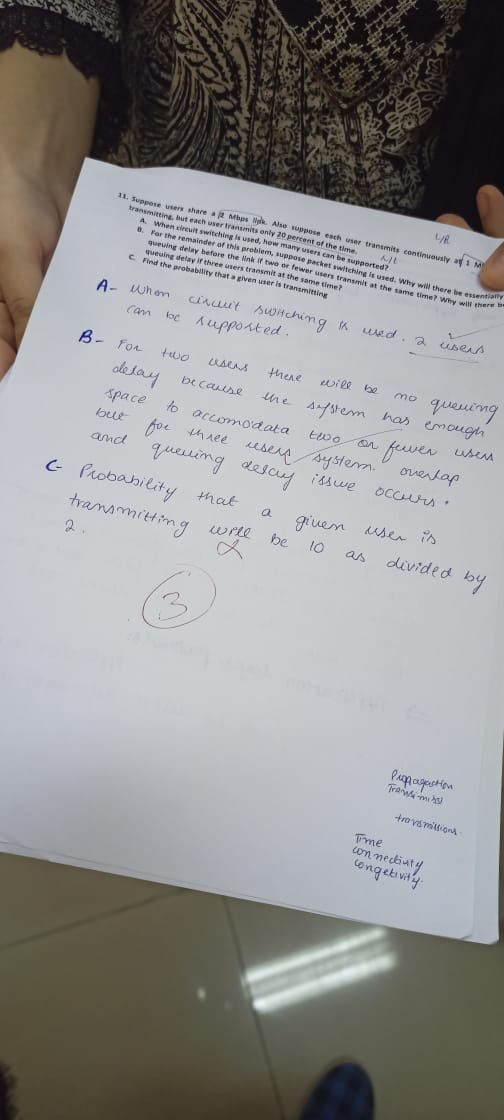 11. Suppose users share a 2 Mbps link. Also suppose each user transmits continuously at 1 M
transmitting, but each user transmits only 20 percent of the time.
A. When circuit switching is used, how many users can be supported?
B. For the remainder of this problem, suppose packet switching is used. Why will there be essentially
queuing delay before the link if two or fewer users transmit at the same time? Why will there be
queuing delay if three users transmit at the same time?
C. Find the probability that a given user is transmitting
L/R
A- When circuit switching is used. 2 users
can be supported.
B- For two users there will be no queuing
delay because the system has enough
space to accomodata two or fewer users
but for three users system overlap
and queuing delay issue occurs.
C- Probability that a given user is
transmitting will be 10 as divided by
2.
3
Propagaction
transmissions.
Time
connectivty
congetivity.